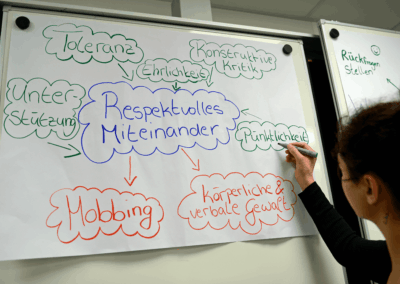 Toleranz
Konstruktive
Kritik
Ehrlichkeit
Unter
Stützung
Respektvolles
Miteinander
Pünktlichkeit
Mobbing
körperliche &
verbale Gewalt
Rückfragen
stellen